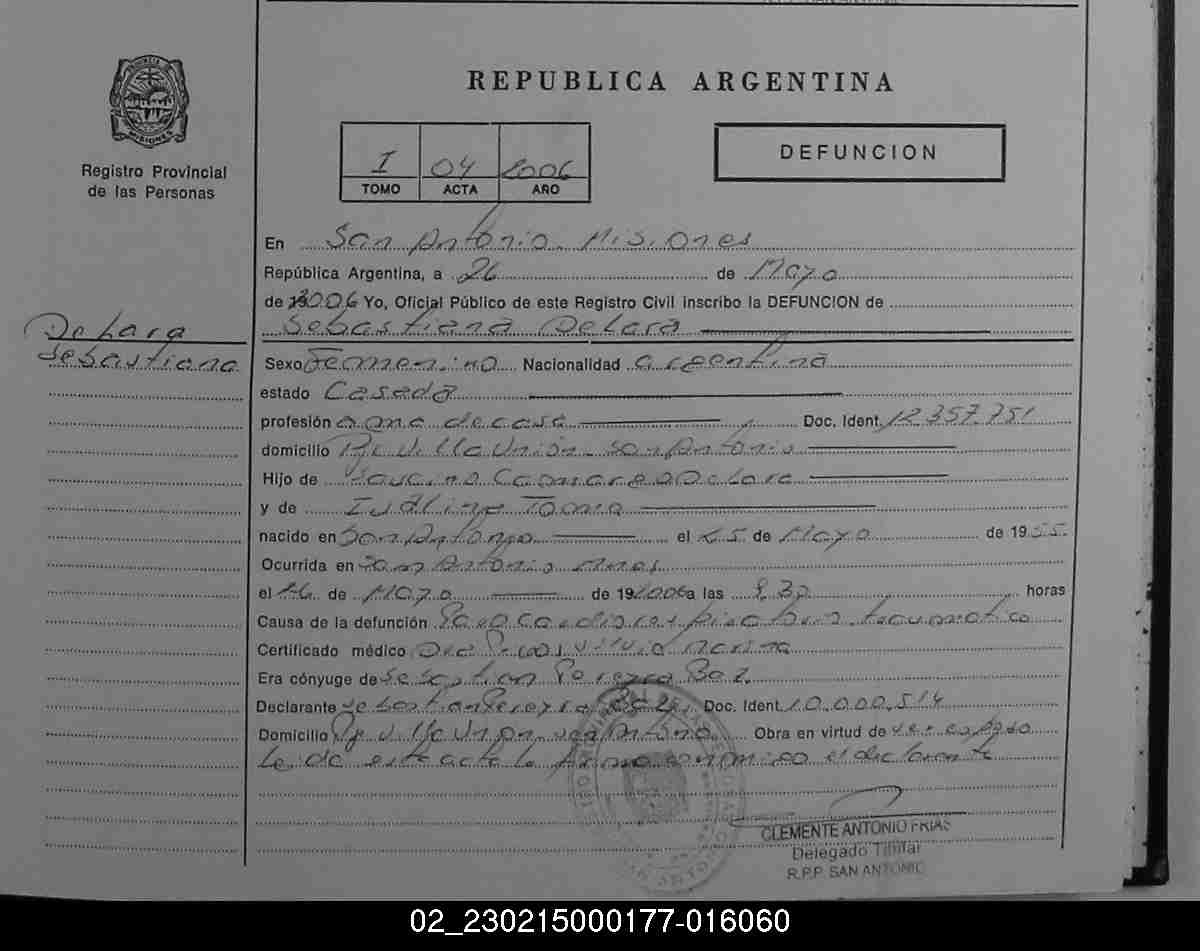 REPUBLICA ARGENTINA
PROVINCIA
MISIONES
Registro Provincial
de las Personas
I 04 2006
TOMO ACTA AÑO
DEFUNCION
En San Antonio. Misiones
República Argentina, a 26 de Mayo
de 2006 Yo, Oficial Público de este Registro Civil inscribo la DEFUNCION de
Sebastiana Delara
DeLara
Sebastiana
Sexo Femenino Nacionalidad argentina
estado Casada
profesión ama de casa Doc. Ident. 12.357.751
domicilio Villa Unión San Antonio
Hijo de Camargo Delara
y de
nacido en San Antonio el de Mayo de 1955.
Ocurrida en San Antonio Mnes
el 26 de Mayo de 192006 a las 8,30 horas
Causa de la defunción Paro Cardiorespiratorio traumatico
Certificado médico
Era cónyuge de Sebastian Pereyra
Declarante Sebastian Pereyra Doc. Ident. 10.000.514
Domicilio Villa Union San Antonio Obra en virtud de ser esposo
Leida este acta la firma conmigo el declarante
CLEMENTE ANTONIO FRIAS
Delegado Titular
R.P.P. SAN ANTONIO
02_230215000177-016060